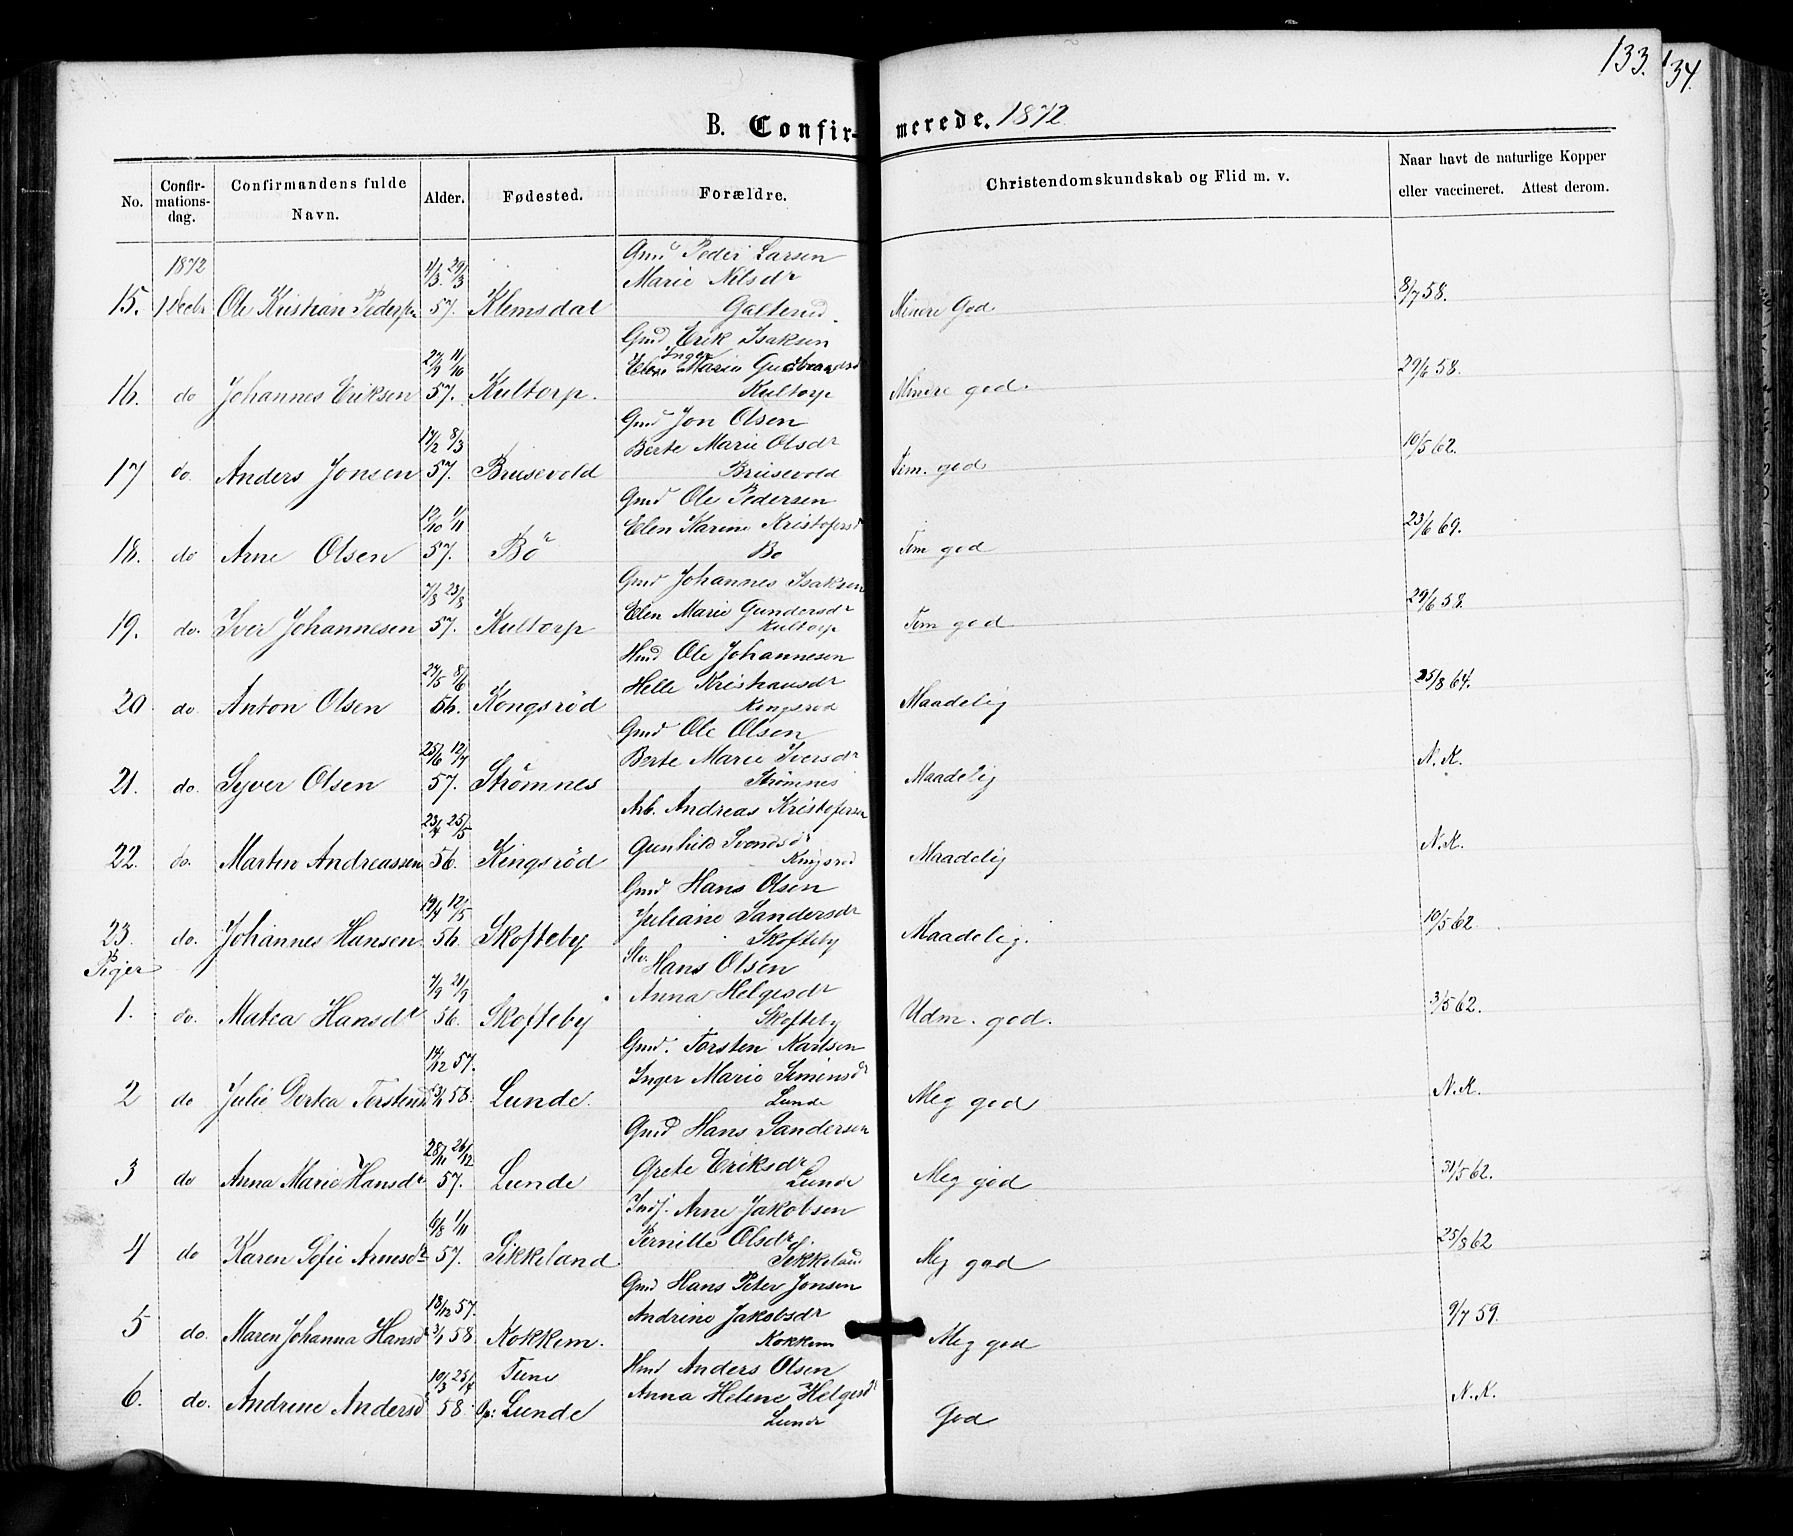 133.
134.
B. Confirmerede. 1872
No.
Confirmationsdag.
Confirmandens fulde Navn.
Alder.
Fødested.
Forældre.
Christendomskundskab og Flid m. v.
Naar havt de naturlige Kopper eller vaccineret. Attest derom.
1872
4/3 29/3 Gmd Peder Larsen
Marie Nilsdr
15. 1 Decbr Ole Kristian Pedersen 57. Klemsdal Galterud Mindre God 8/7 58.
Gmd Erik Isaksen
Inger
16. do Johannes Eriksen 57. Kultorp. Marie Gudbrandsd Kultorp Mindre god. 29/6 58.
Gmd Jon Olsen
17/2 8/3 Berte Marie Olsdr
17 do. Anders Jonsen 57. Brusevold Brusevold Tem. god 10/5 62.
Gmd Ole Pedersen
12/10 1/11 Elen Karine Kristofersd
18. do Arne Olsen 57. Bö Bö Tem god 23/6 69.
Gmd Johannes Isaksen
7/8 23/8 Elen Marie Gundersdr
19. do. Iver Johannesen 57. Kultorp Kultorp Tem god 29/6 58.
Hmd Ole Johannesen
27/5 8/6 Helle Kristiansdr
20 do. Anton Olsen 56. Kongsröd Kongsrød Maadelig 25/8 64.
Gmd Ole Olsen
25/6 12/7 Berte Marie Iversdr
21. do. Syver Olsen 57. Strömnes Strømnes Maadelig N. K.
Arb. Andreas Kristofersen
23/4 25/5 Gunhild Svendsdr
22. do. Martin Andreassen 56. Kingsröd Kingsrød Maadelig N. K.
Gmd Hans Olsen
19/4 12/5 Juliane Sandersdr
23. do. Johannes Hansen 56. Skofteby Skofteby Maadelig. 10/5 62
Piger
Slv. Hans Olsen
7/9 21/9 Anna Helgesdr
1. do. Matea Hansdr 56. Skofteby Skofteby Udm. god. 31/5 62.
Gmd. Torsten Karlsen
14/12 57. Inger Marie Simensdr
2 do Julie Dortea Torstensd 13/1 58. Lunde. Lunde Meg god N. K.
Gmd Hans Sandersen
28/11 26/12 Grete Eriksdr
3 do Anna Marie Hansdr 57. Lunde Lunde Meg god 31/5 62.
Indf. Arne Jakobsen
6/8 1/11 Pernille Olsdr.
4 do Karen Sofie Arnesdr 57. Sikkeland Sikkeland Meg god 25/8 62
Gmd Hans Peter Jonsen
18/12 57. Andrine Jakobsdr
5 do. Maren Johanna Hansdr 3/1 58. Kokkem. Kokkem Meg god 9/7 59.
10/3 25/4 Tune Hmd Anders Olsen
Anna Helene Helgesdr
6. do. Andrine Andersd 58. Op: Lunde Lunde God N. K.